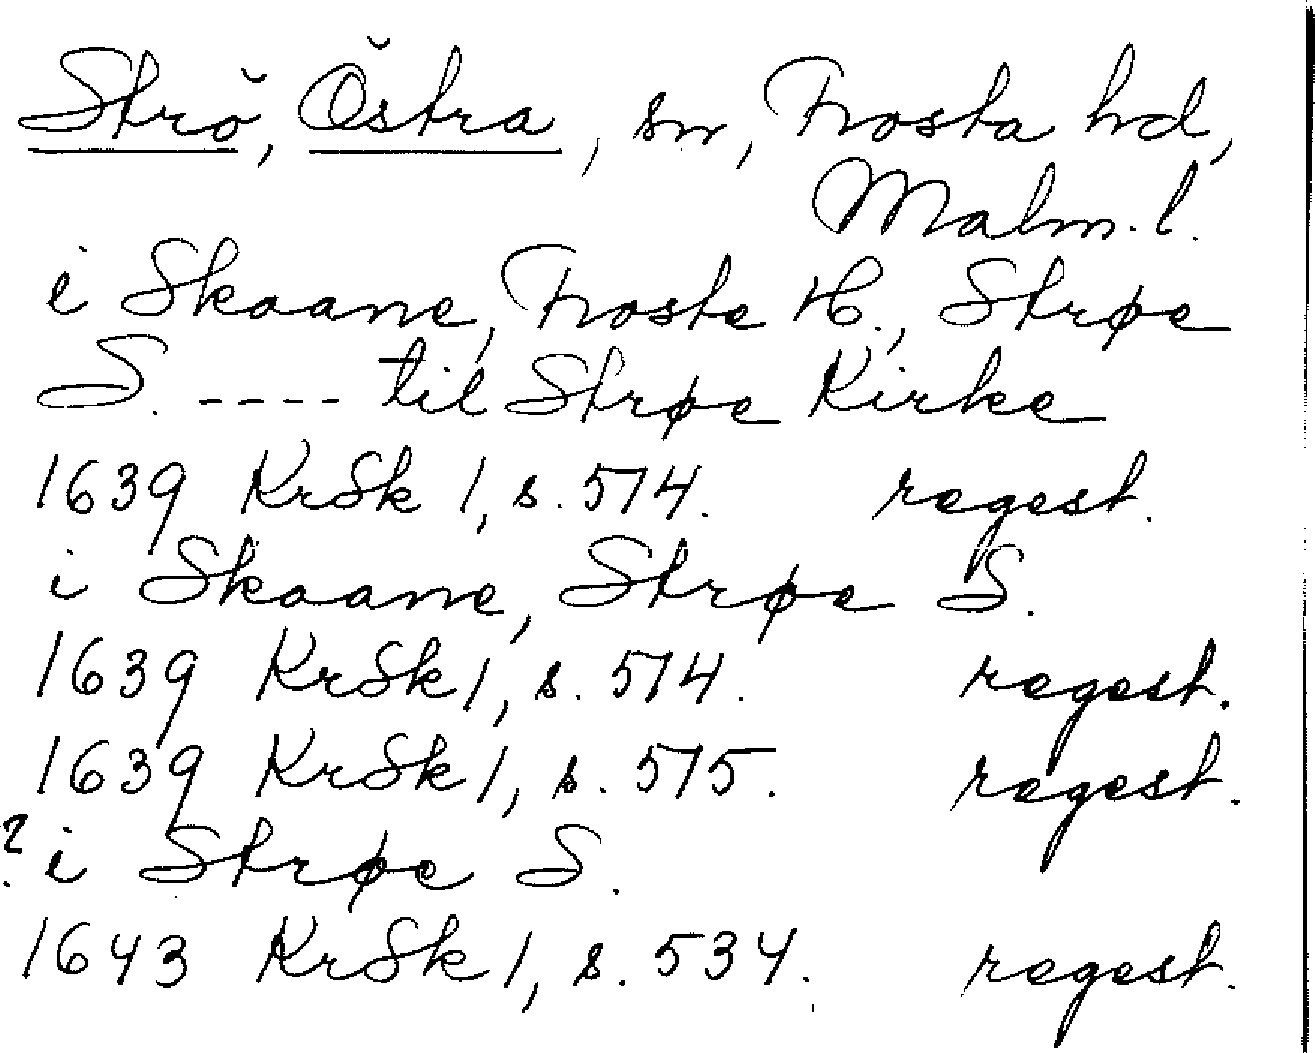 Strö, Östra, sn, Frosta hd,
Malm. l.
i Skaane, Froste H., Strøe
S. ---- til Strøe Kirke
1639 KrSk 1, s. 574. regest.
i Skaane, Strøe S.
1639 KrSk 1, s. 574. regest.
1639 KrSk 1, s. 575. regest.
? i Strøe S.
1643 KrSk 1, s. 534. regest.